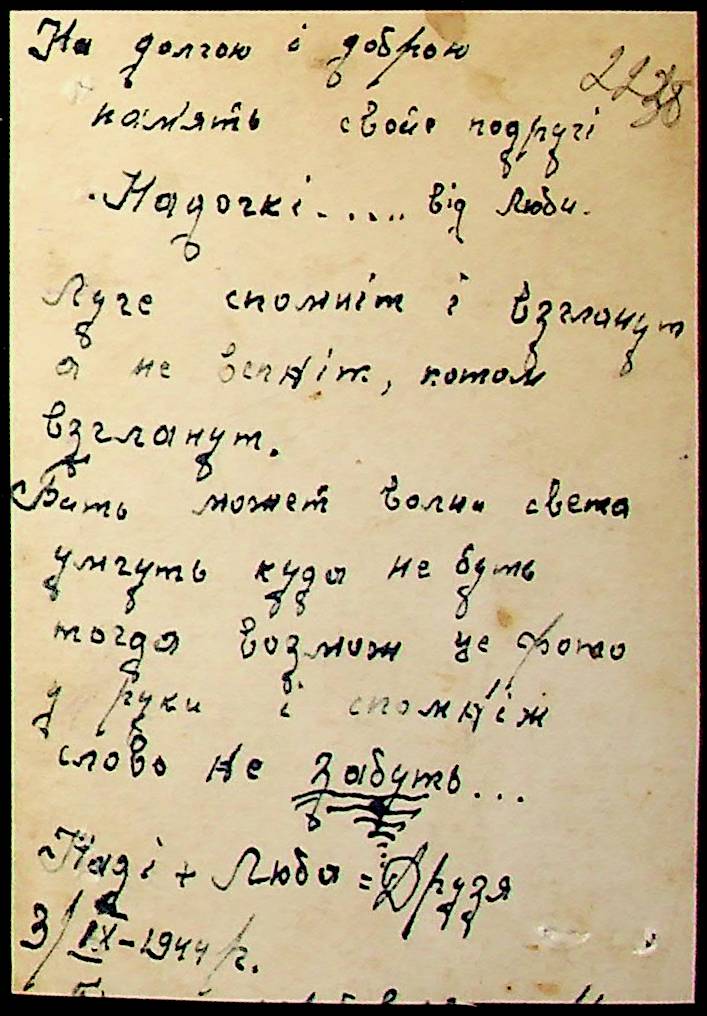 На долгою і доброю
2238
памʼять своїе подругі
Надочкі..... від Люби.
Луче спомніт і взглянут
а не вспніт, потом
взглянут.
Бить может волни света
умчуть куда не буть
тогда возмож це фото
у руки і спомніж
слово не забуть...
Наді + Люба = Друзя
3/IX-1944 р.